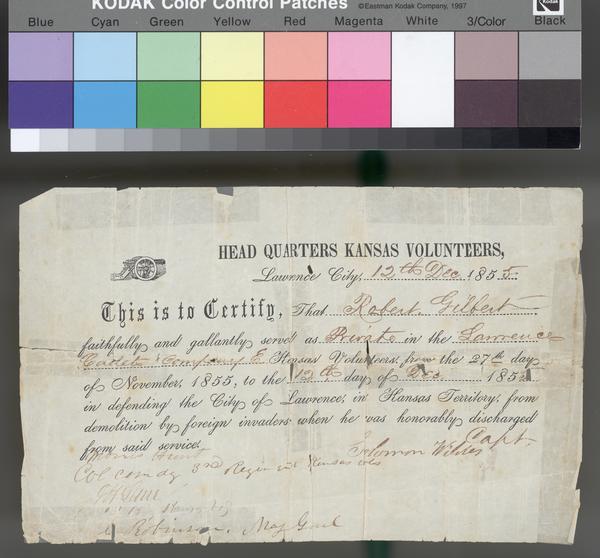 KODAK Color Control Patches ©Eastman Kodak Company, 1997
Kodak
Blue Cyan Green Yellow Red Magenta White 3/Color Black
HEAD QUARTERS KANSAS VOLUNTEERS,
Lawrence City, 12th Dec 1855.
This is to Certify, That Robert Gilbert
faithfully and gallantly served as Private in the Lawrence
Cadets Company E Kansas Volunteers, from the 27th day
of November, 1855, to the 12th day of Dec 185
in defending the City of Lawrence, in Kansas Territory, from
demolition by foreign invaders when he was honorably discharged
from said service.
Solomon Wildes Capt
Col comdg 3rd Regiment Kansas vols
Robinson, Maj Genl